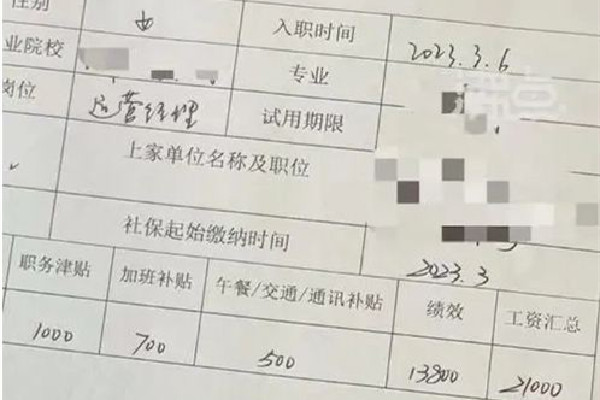 性别 入职时间 2023.3.6
业院校 专业
岗位 运营经理 试用期限
上家单位名称及职位
社保起始缴纳时间 2023.3
职务津贴 加班补贴 午餐/交通/通讯补贴 绩效 工资汇总
1000 700 500 13800 21000